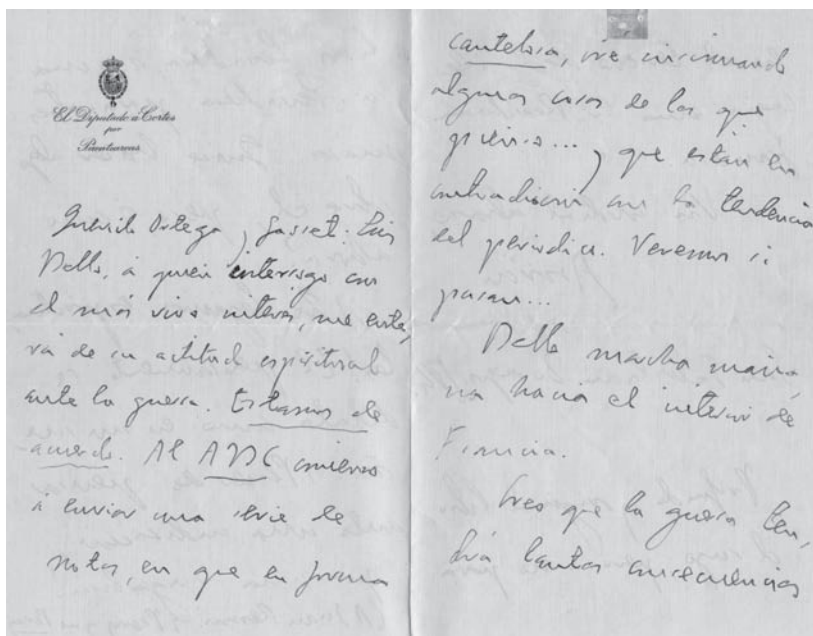 El Diputado á Cortes
por
Querido Ortega y Gasset: Luis
Bello, á quien interrogo con
el más vivo interés, me ente,
ra de su actitud espiritual
ante la guerra. Estamos de
acuerdo. Al ABC comienzo
á enviar una serie de
notas, en que en forma
cautelosa, voy insinuando
algunas cosas de las que
pienso... y que están en
contradicción con la tendencia
del periódico. Veremos si
pasan...
Bello marcha maña,
na hacia el interior de
Francia.
Creo que la guerra ten,
drá tantas consecuencias